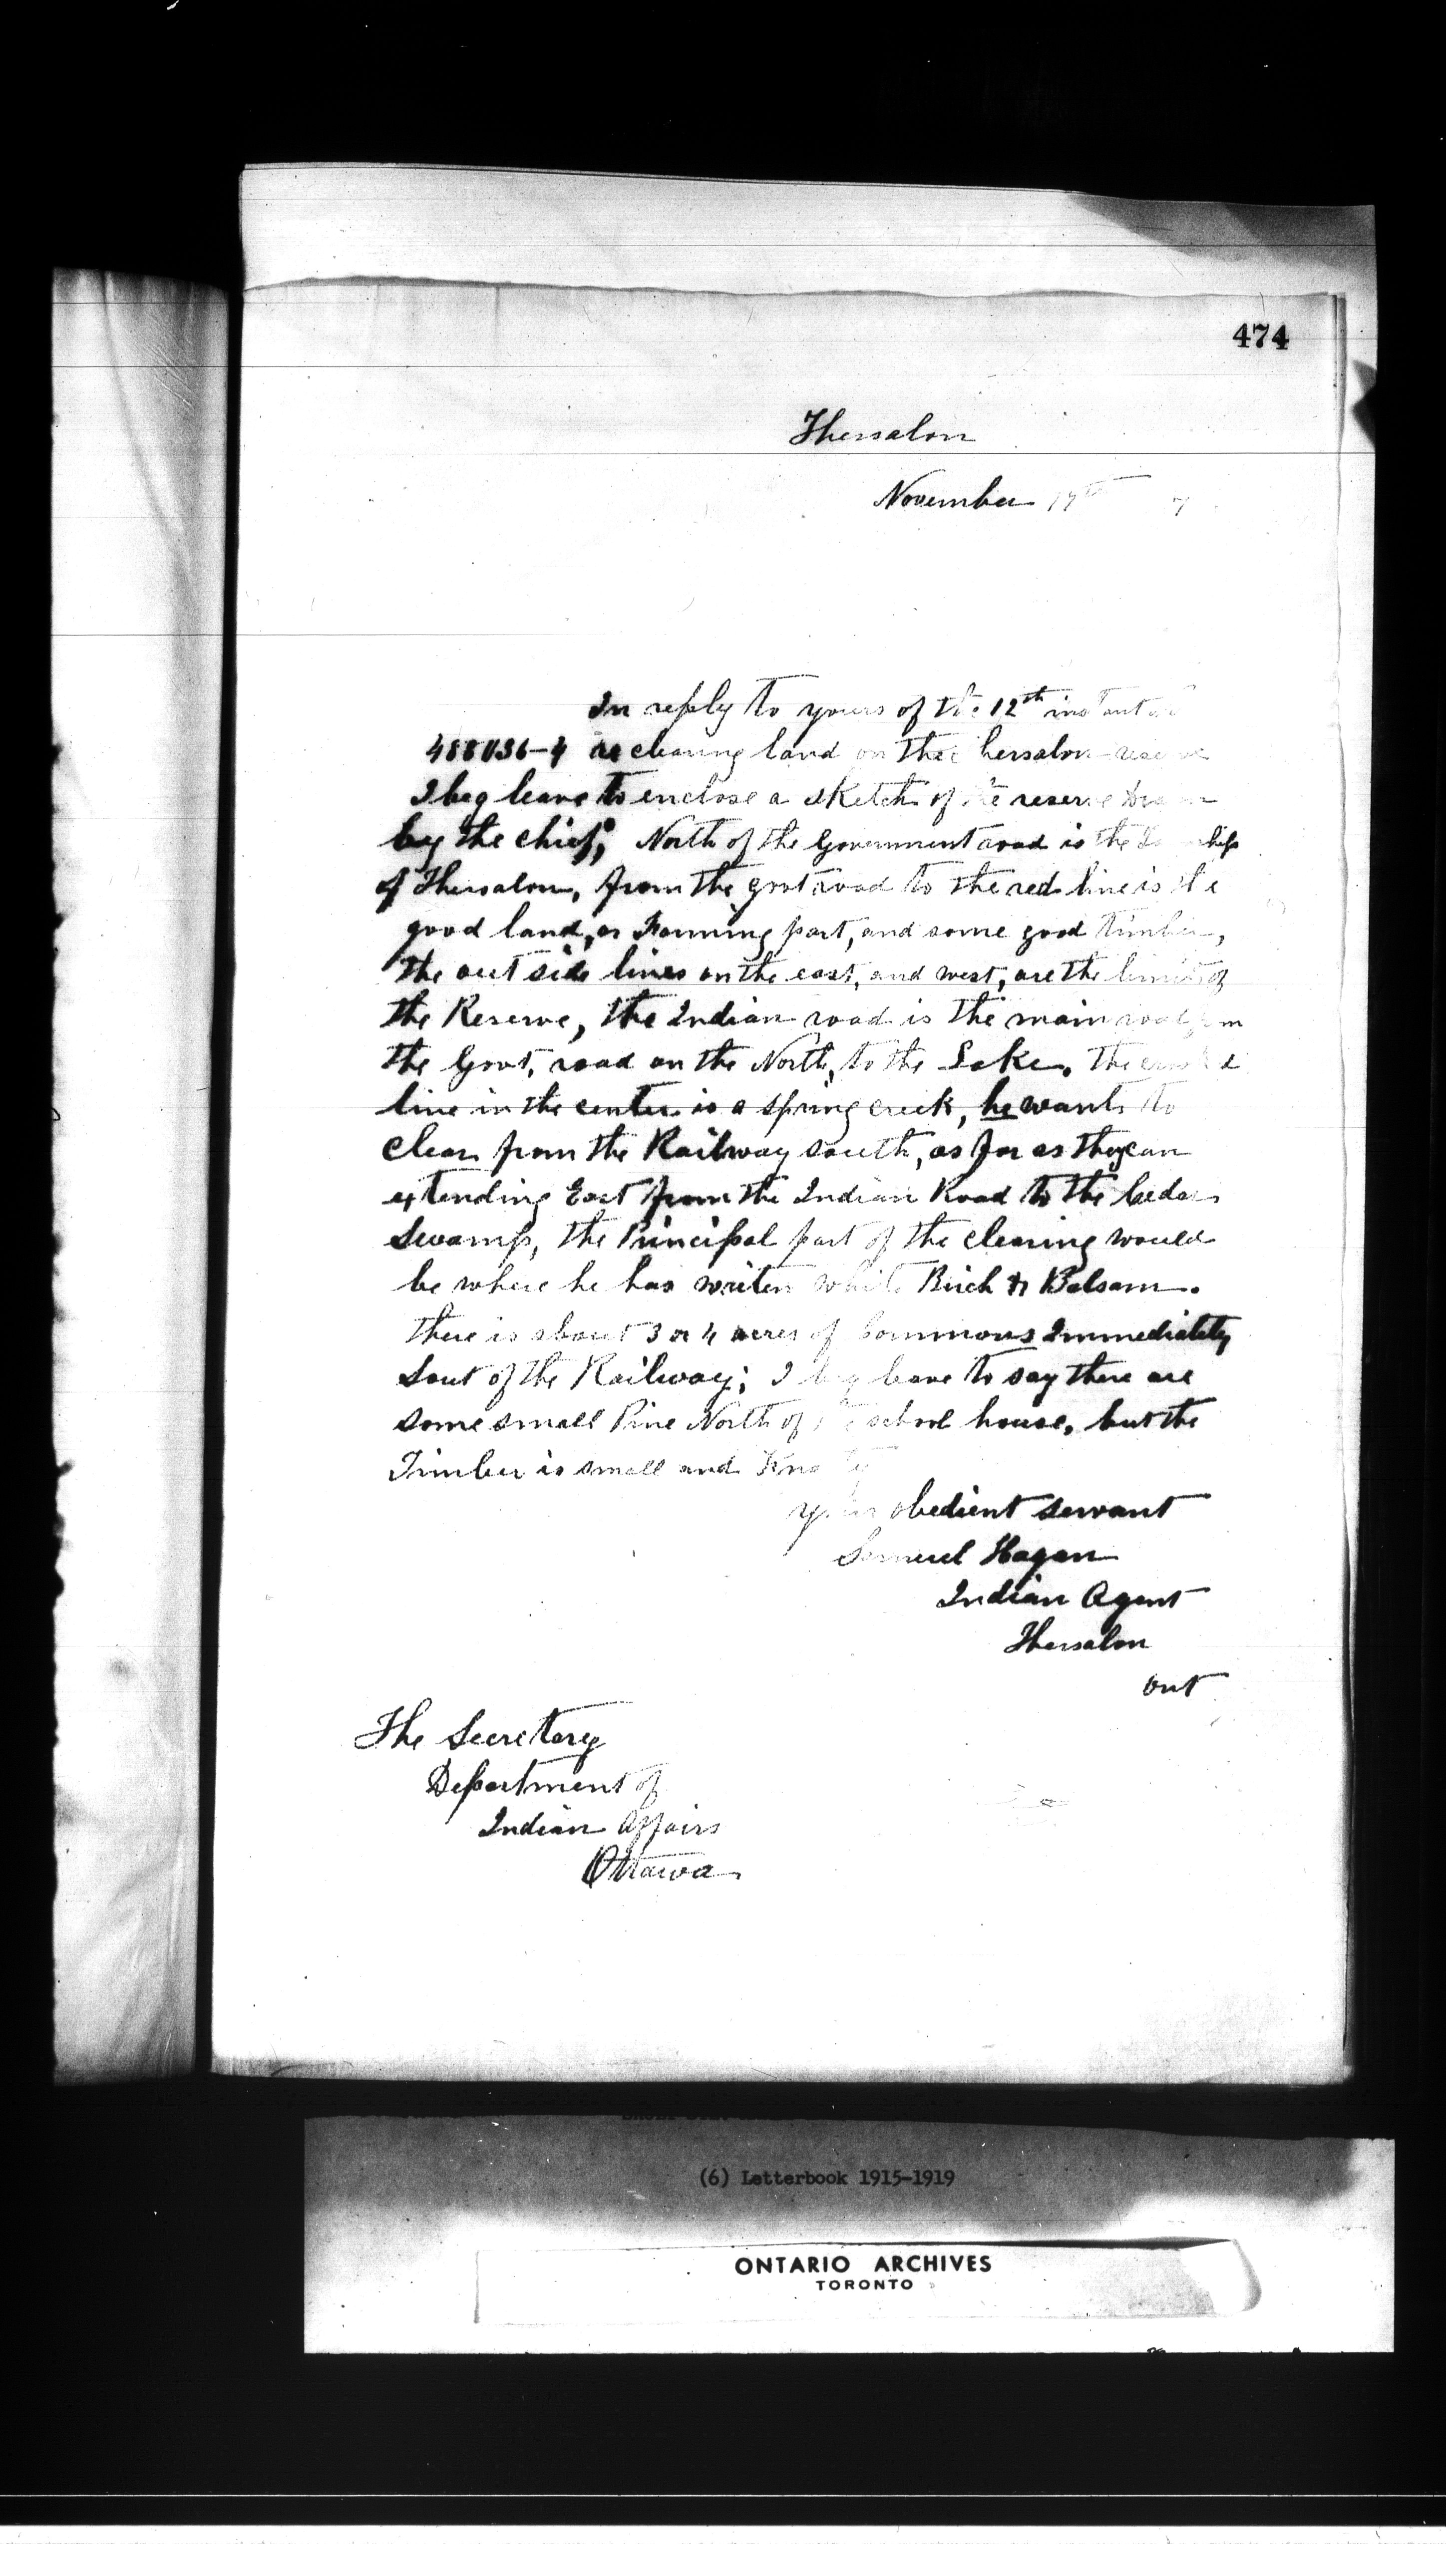 474
Thessalon
November 17th 7
In reply to yours of the 12th instant
re clearing land on the Thessalon reserve
I beg leave to enclose a sketch of the reserve drawn
by the chief; North of the Government road is the Township
of Thessalon, from the govt road to the red line is the
good land, or Farming part, and some good timber,
the out side lines on the east, and west, are the limits of
the Reserve, the Indian road is the main road from
the Govt, road on the North, to the Lake. The crooked
line in the center is a spring creek, he wants to
clear from the Railway south, as far as they can
extending East from the Indian Road to the Cedar
Swamp, the Principal part of the clearing would
be where he has writen white Birch & Balsam.
there is about 3 or 4 acres of Commons Immediately
Sout of the Railway; I beg leave to say there are
some small Pine North of the school house, but the
Timber is small and Knoty
your obedient servant
Samuel Hagan
Indian Agent
Thessalon
Ont
The Secretary
Department of
Indian Affairs
Ottawa
(6) Letterbook 1915-1919
ONTARIO ARCHIVES
TORONTO